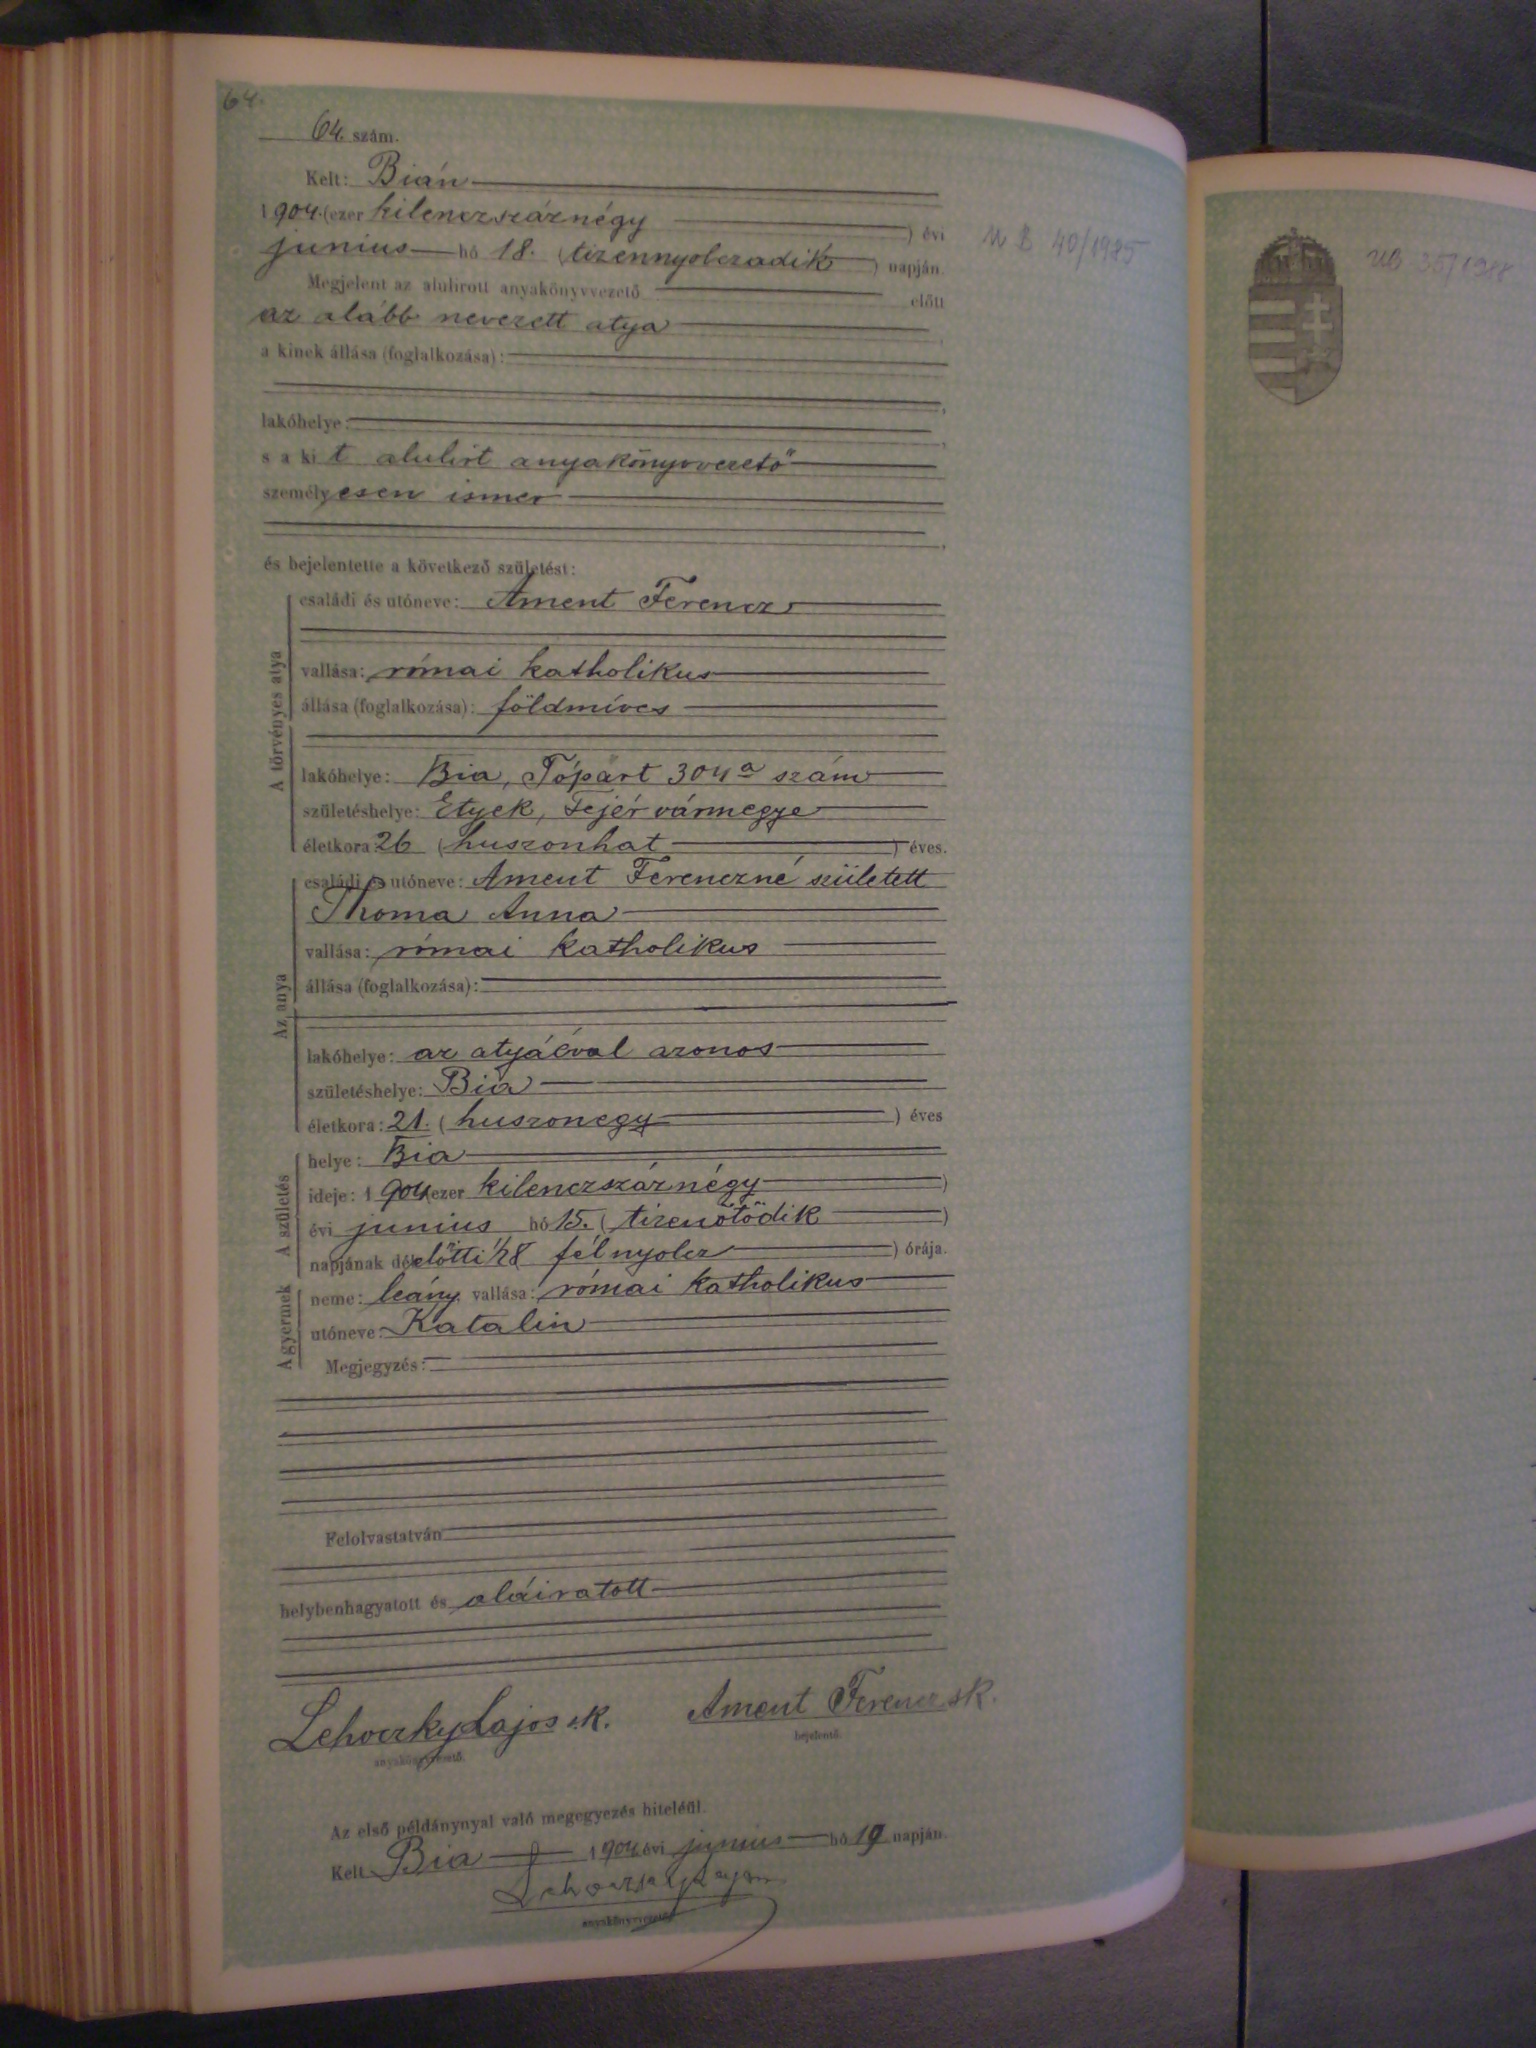 64.
64. szám.
Kelt: Bián
1904. (ezer kilenczszáznégy ) évi
junius hó 18. (tizennyolczadik ) napján.
Megjelent az alulirott anyakönyvvezető előtt
az alább nevezett atya ,
a kinek állása (foglalkozása):
,
lakóhelye: ,
s a kit alulirt anyakönyvvezető
személyesen ismer
,
és bejelentette a következő születést:
A törvényes atya
családi és utóneve: Ament Ferencz
vallása: római katholikus
állása (foglalkozása): földmíves
lakóhelye: Bia, Tópart 304a szám
születéshelye: Etyek, Fejér vármegye
életkora 26 (huszonhat ) éves.
Az anya
családi és utóneve: Ament Ferenczné született
Thoma Anna
vallása: római katholikus
állása (foglalkozása):
lakóhelye: az atyáéval azonos
születéshelye: Bia
életkora: 21. (huszonegy ) éves
A születés
helye: Bia
ideje: 1904 (ezer kilenczszáznégy )
évi junius hó 15. (tizenötödik )
napjának délelőtti ½8 fél nyolcz ) órája.
A gyermek
neme: leány vallása: római katholikus
utóneve: Katalin
Megjegyzés:
Felolvastatván
helybenhagyatott és aláiratott
Lehoczky Lajos s.k. Ament Ferencz sk.
anyakönyvvezető. bejelentő.
Az első példánynyal való megegyezés hiteléül.
Kelt Bia 1904 évi junius hó 19 napján.
Lehoczky Lajos
anyakönyvvezető
U B 40/1985